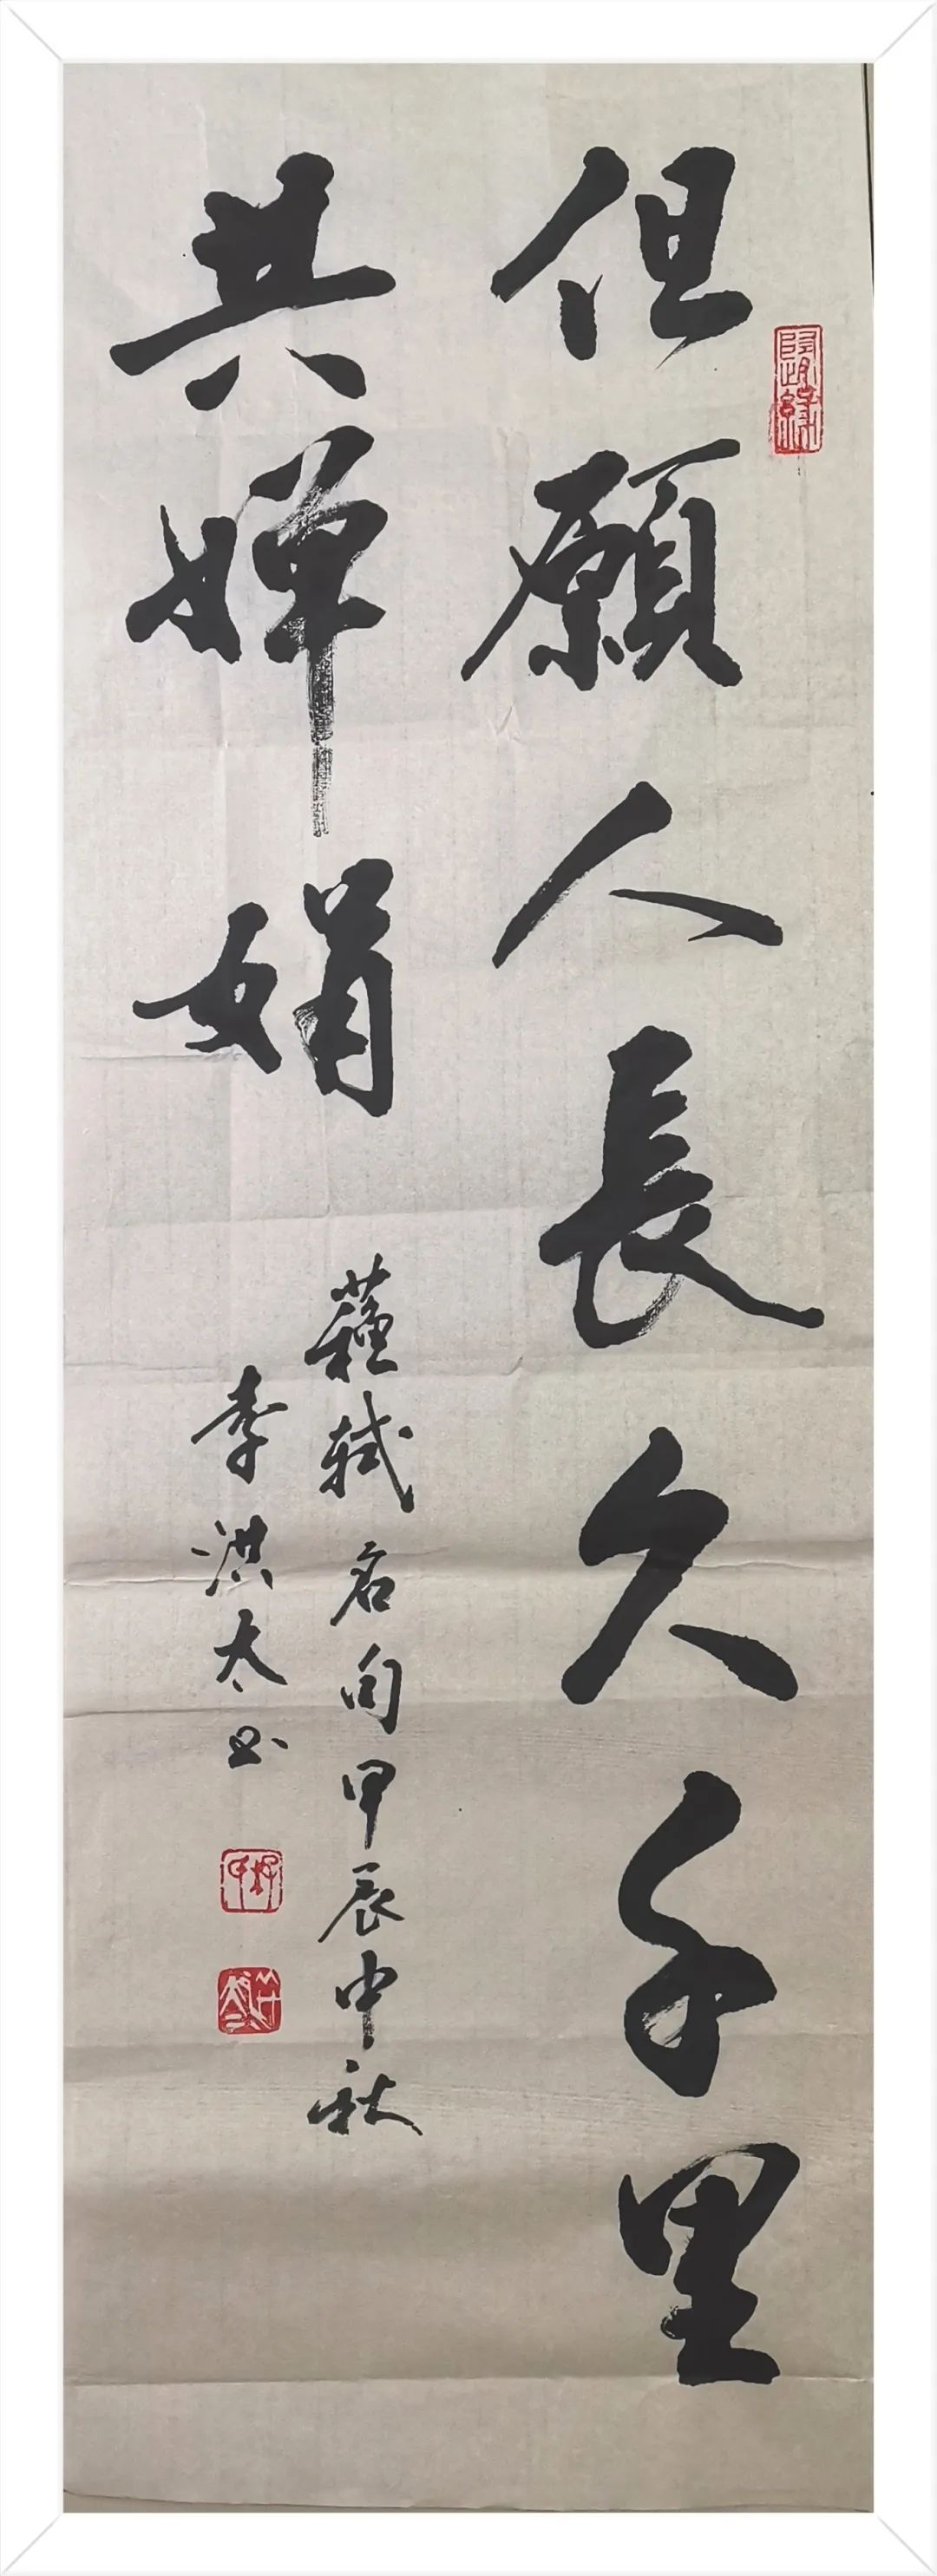 但願人長久千里
共嬋娟
蘓軾名句甲辰中秋
李洪太书